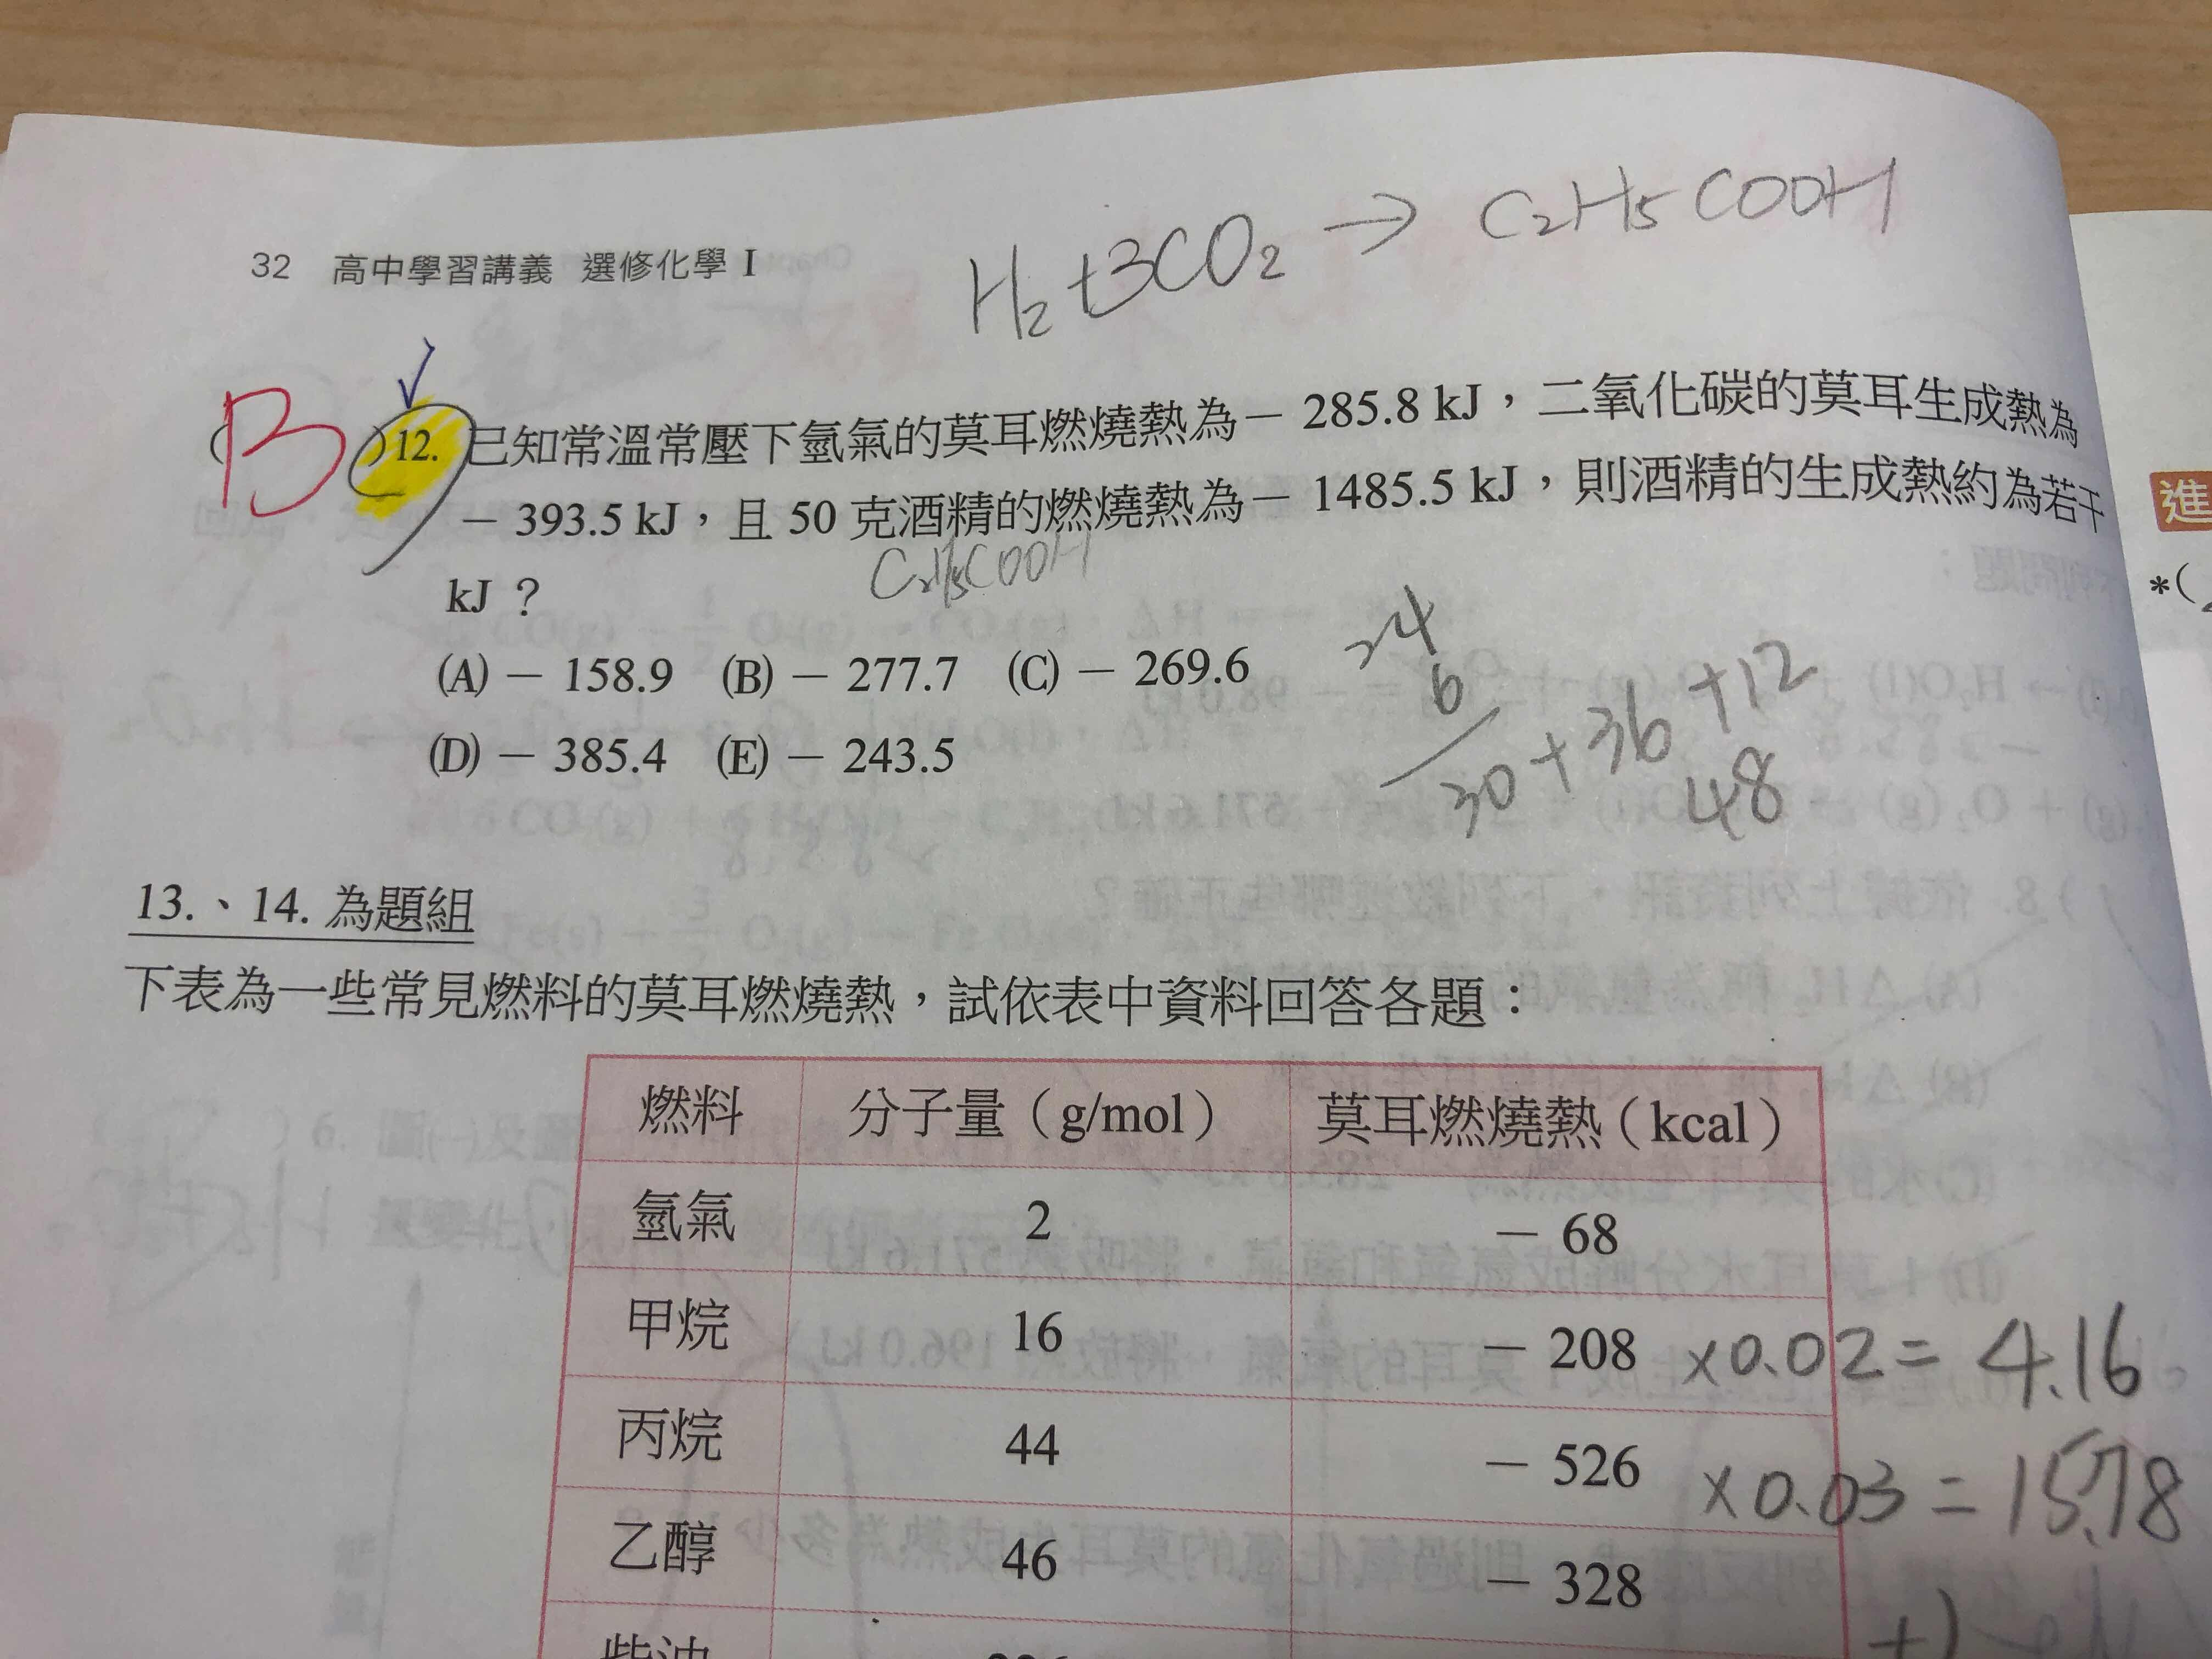 H₂+3CO₂ → C₂H₅COOH
32 高中學習講義 選修化學 I
B
( )12. 已知常溫常壓下氫氣的莫耳燃燒熱為－ 285.8 kJ，二氧化碳的莫耳生成熱為
－ 393.5 kJ，且 50 克酒精的燃燒熱為－ 1485.5 kJ，則酒精的生成熱約為若干
C₂H₅COOH
kJ ？
(A)－ 158.9 (B)－ 277.7 (C)－ 269.6
(D)－ 385.4 (E)－ 243.5
24
6
30+36+12
48
13.、14. 為題組
下表為一些常見燃料的莫耳燃燒熱，試依表中資料回答各題：
燃料 分子量（g/mol） 莫耳燃燒熱（kcal）
氫氣 2 － 68
甲烷 16 － 208 ×0.02= 4.16
丙烷 44 － 526 ×0.03 = 15.78
乙醇 46 － 328
柴油
進
*(